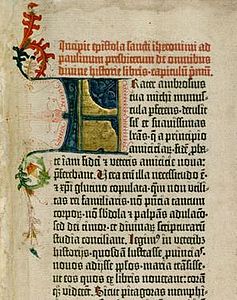 Incipit epistola sancti iheronimi ad
paulinum presbiterum de omnibus
divine historie libris. capitulū p̄mū.
Frater ambrosius
tua michi munus-
cula perferens. detulit
sil' et suavissimas
lr̄as. q̄ a principio
amiciciaꝝ. fidē ꝓba-
te iam fidei et veteris amicicie nova:
p̄ferebant. Vera enī illa necessitudo ē.
et xp̄i glutino copulata: quā non utili-
tas rei familiaris. nō p̄ntia tantum
corporū. nō subdola et palpās adulacō:
sed dei timor. et divinaꝝ scripturarū
studia conciliant. Legimꝰ in veteribꝫ
historijs. quosdā lustrasse ꝓvincias.
novos adijsse pp̄los. maria trāsisse.
ut eos quos ex libris noverant: corā
qꝫ viderēt. Sicut pitagoras memphi-